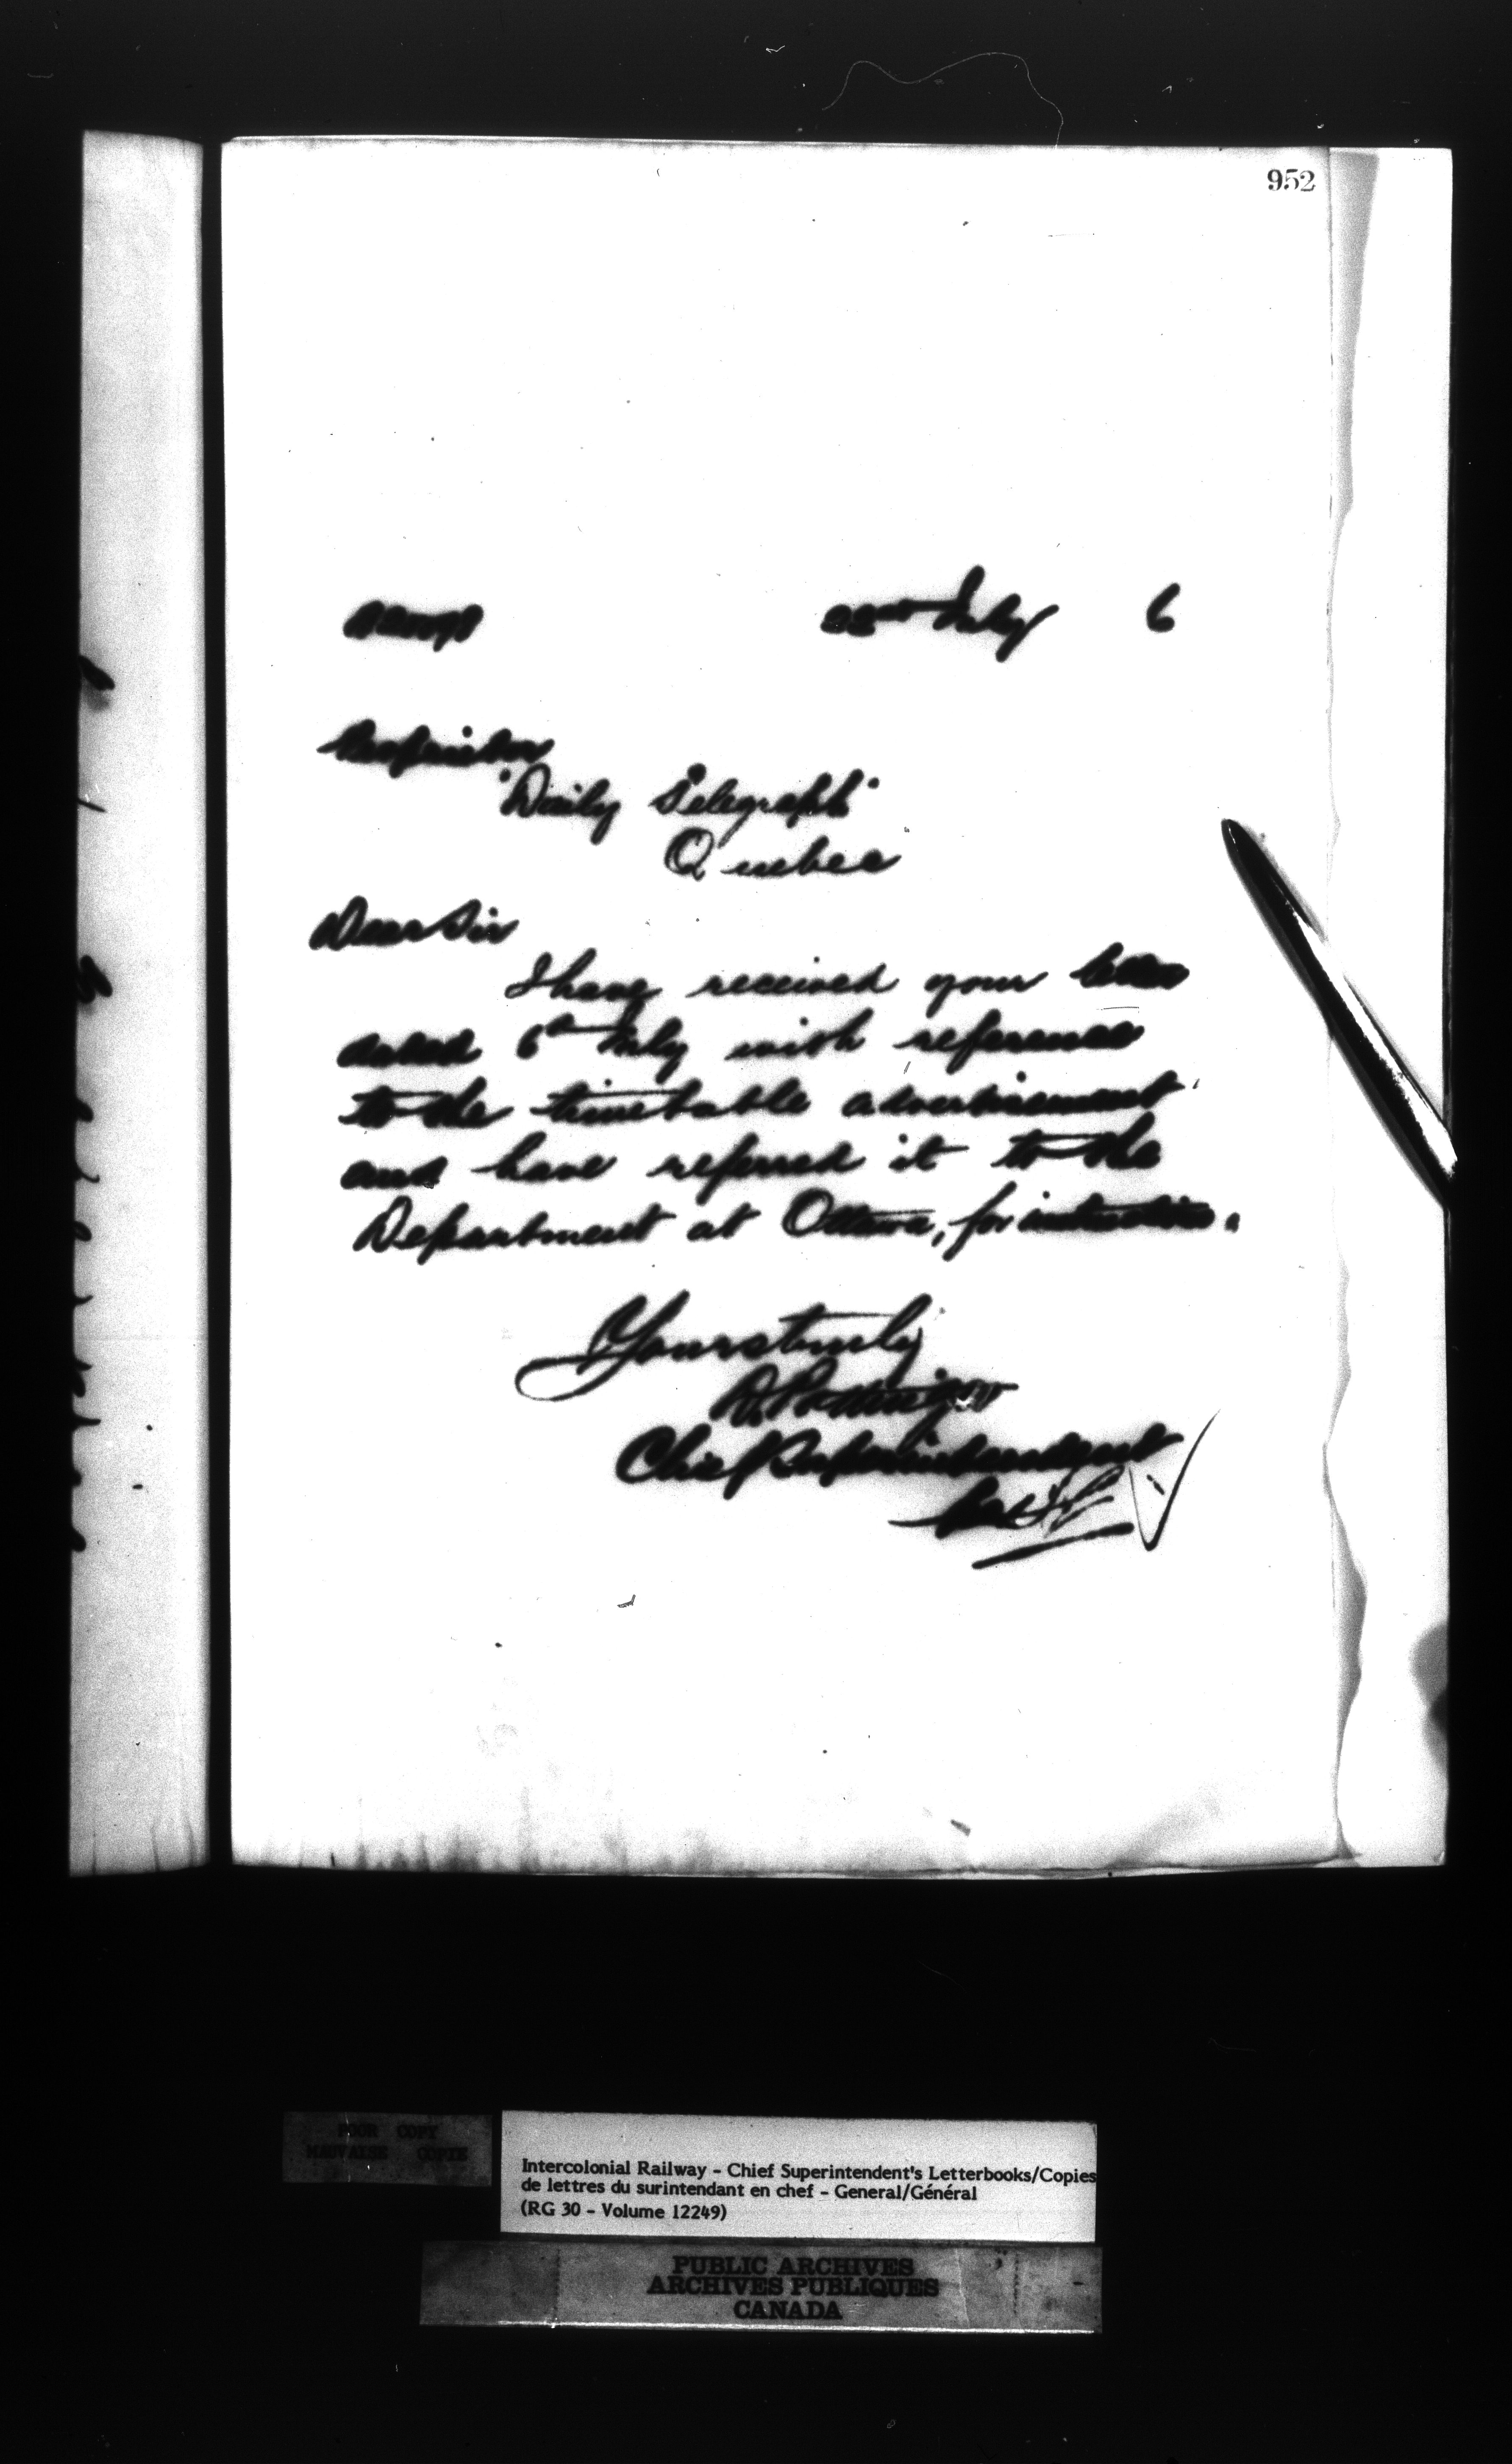 952
22nd July 6
Proprietor
"Daily Telegraph"
Quebec
Dear Sir
I have received your letter
dated 6th July with reference
to the timetable advertisement
and have referred it to the
Department at Ottawa, for instructions.
Yours truly
D. Pottinger
Chief Superintendent
POOR COPY
MAUVAISE COPIE
Intercolonial Railway - Chief Superintendent's Letterbooks/Copies
de lettres du surintendant en chef - General/Général
(RG 30 - Volume 12249)
PUBLIC ARCHIVES
ARCHIVES PUBLIQUES
CANADA